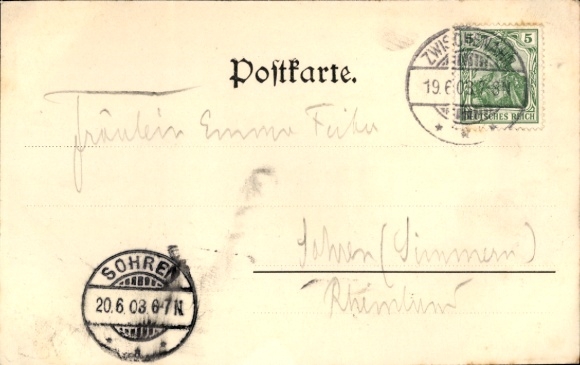 5 5
ZWISCHENAHN
19.6.03. 8-9N
DEUTSCHES REICH
Postkarte.
Fräulein Emma
Sohren (Simmern)
Rheinland
SOHREN
20.6.03.6-7N